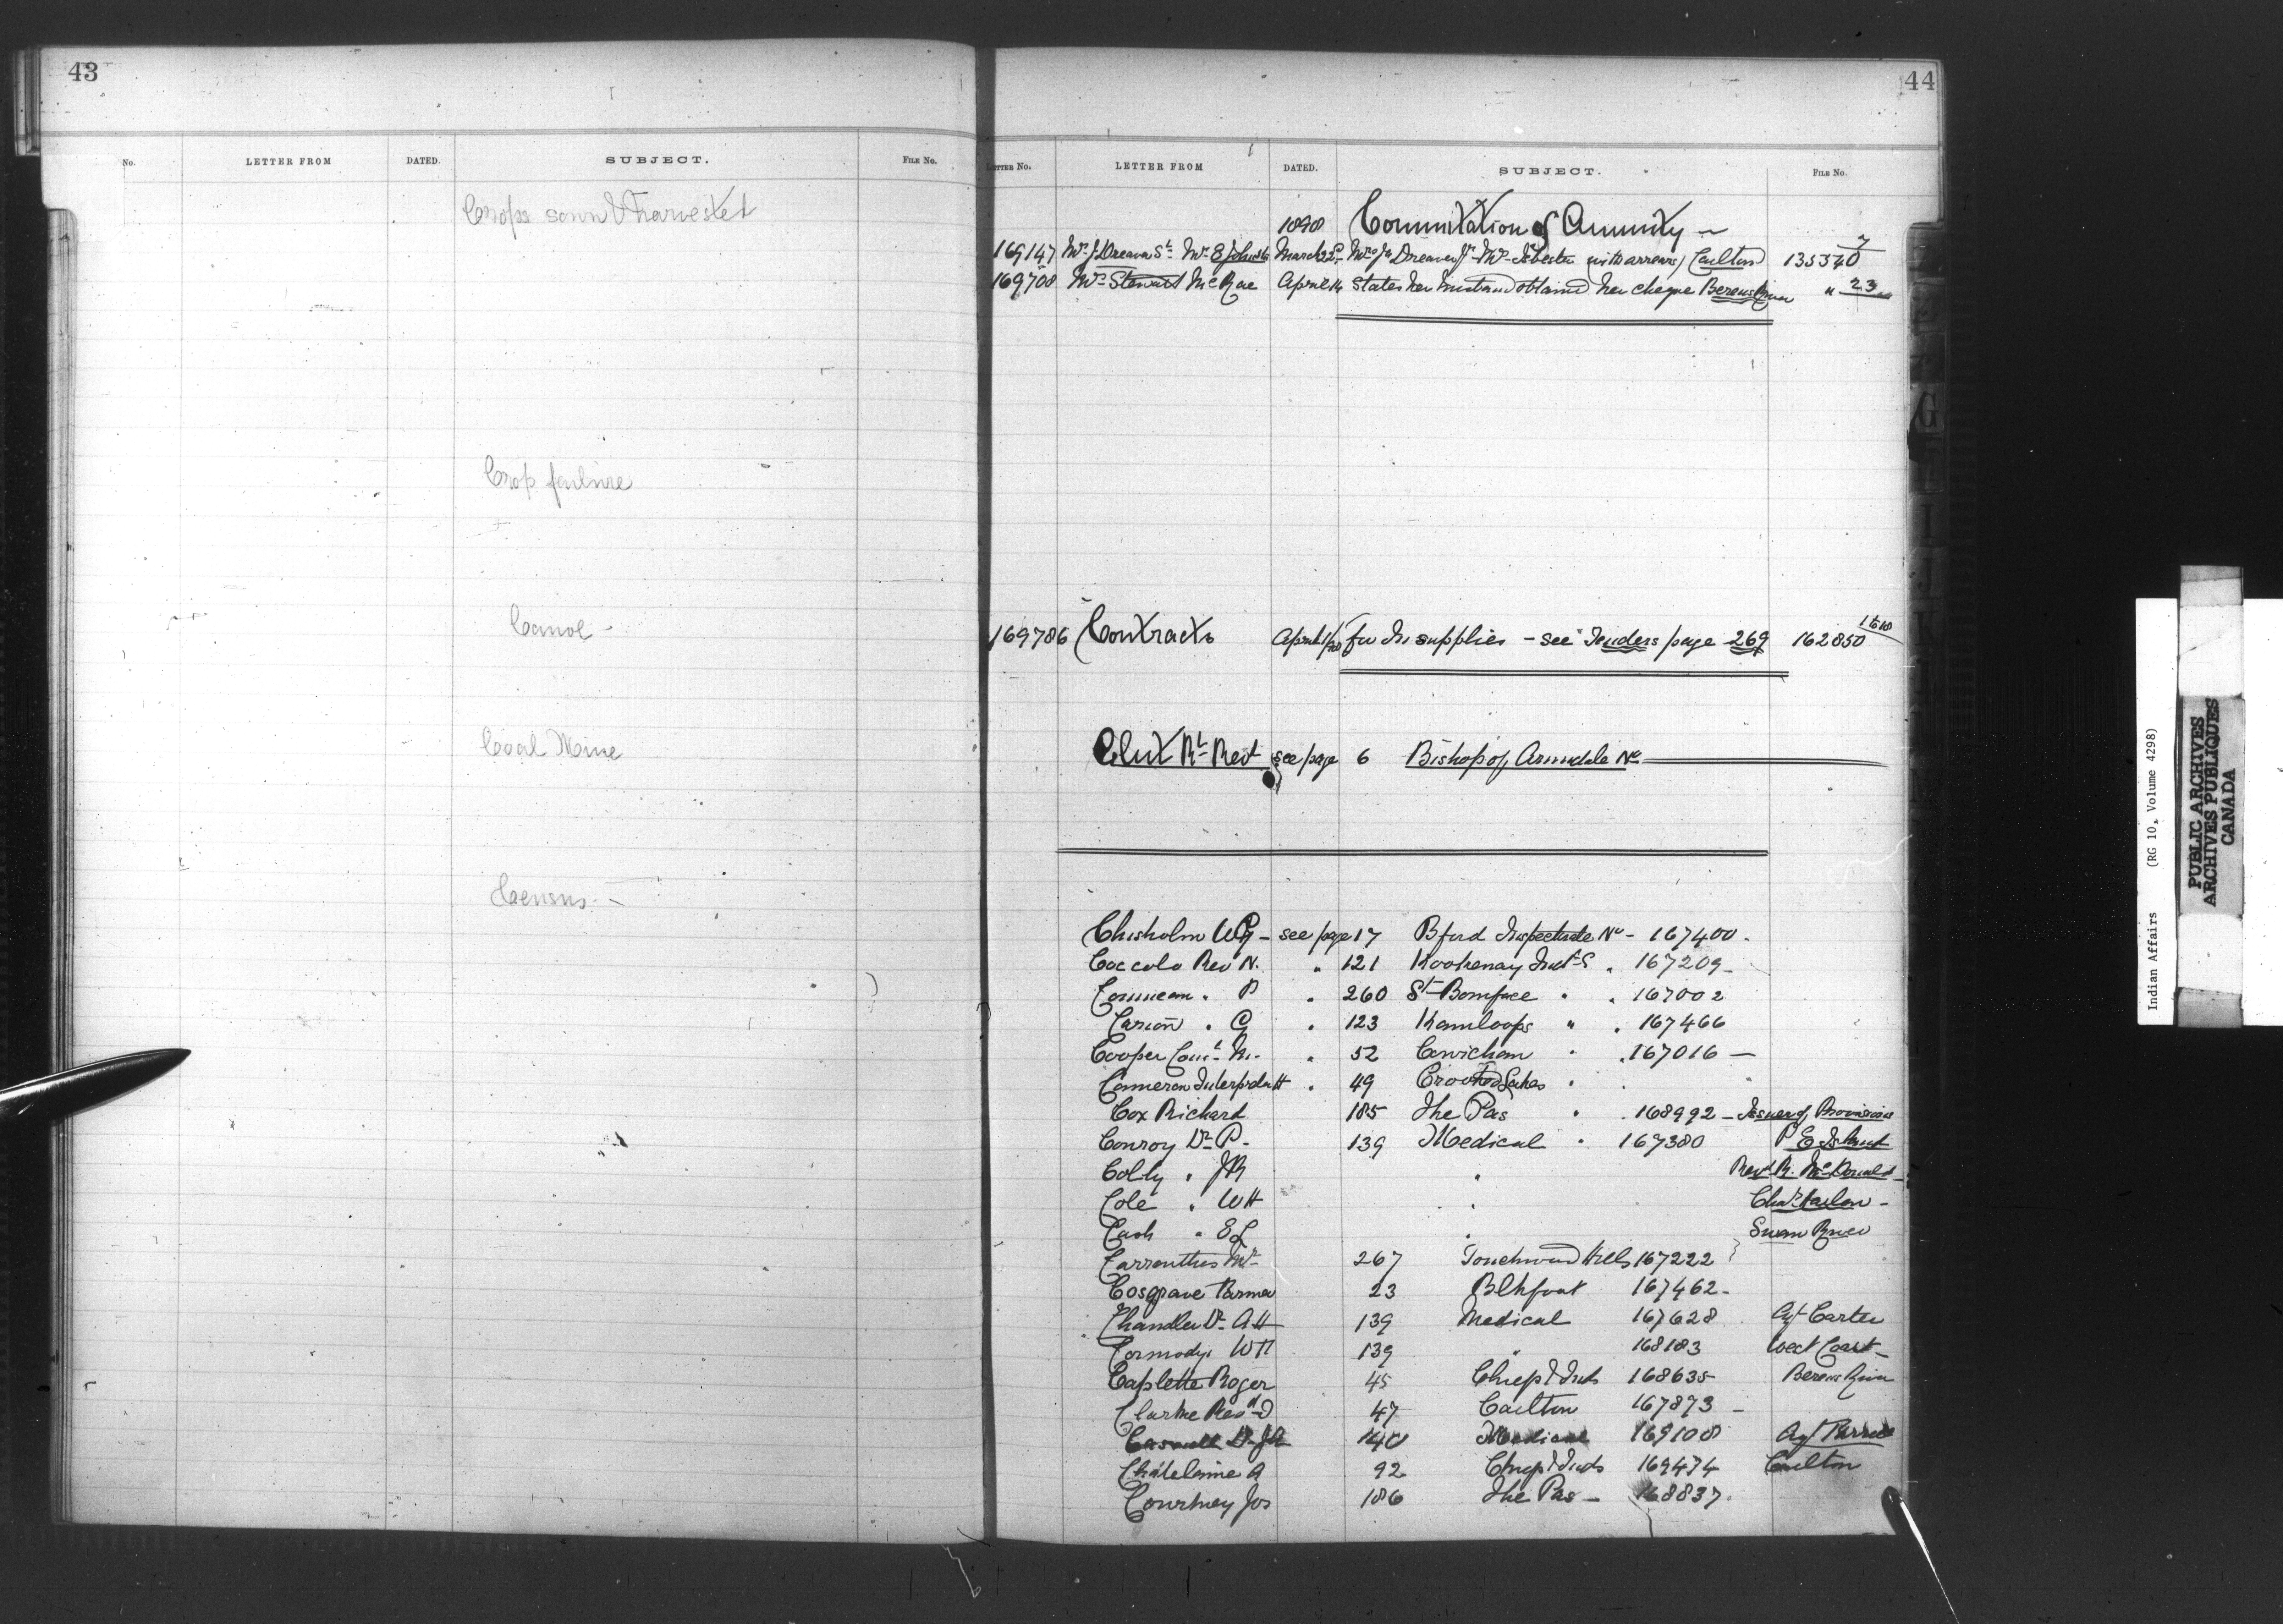 43
No. LETTER FROM DATED. SUBJECT. FILE No.
Crops sown & harvested
Crop failure
Canoe -
Coal Mine
Census -
44
LETTER No. LETTER FROM DATED. SUBJECT. FILE No.
1898 Commutation of Annuity -
169147 Mrs J Dreaver Sr Mrs E Johnston March 22 Mrs Jas Dreaver Jr Mrs Isbester (with arrears) Carlton 135340 7
169708 Mrs Stewart McRae April 14 States her husband obtained her cheque Berens River " 23
169786 Contracts April for In supplies - see Tenders page 269 162850
Clut Rt Revd see page 6 Bishop of Arundele No
Chisholm WG - see page 17 Bford Inspectorate No - 167400 -
Coccola Rev N. " 121 Kootenay Indl S " 167209 -
Comeau " P " 260 St Boniface " " 167002
Carion " G " 123 Kamloops " " 167466
Cooper " 52 Cowichan " " 167016 -
Cameron Interpreter H " 49 Crooked Lakes "
Cox Richard 185 The Pas " " 168992 - Issuer of Provisions
Conroy Dr P. 139 Medical " 167380 P E Island
Colby " JR " Revd R. McDonald
Cole " WH " Chas Harlow -
Cash " EL " Swan River
Carruthers Mr 267 Touchwood Hills 167222
Cosgrave Farmer 23 Blkfoot 167462 -
Chandler Dr AH 139 Medical 167628 Agt Carter
Cormody " WH 139 " 168183 West Coast -
Caplette Roger 45 Chiefs & Inds 168635 Berens River
Clarke Revd D 47 Carlton 167873 -
Casault Dr JA 140 Medical 169108 Agt
Chatelaine A 92 Chiefs & Inds 169474 Carlton
Courtney Jos 186 The Pas - 168837.
Indian Affairs (RG 10, Volume 4298)
PUBLIC ARCHIVES
ARCHIVES PUBLIQUES
CANADA